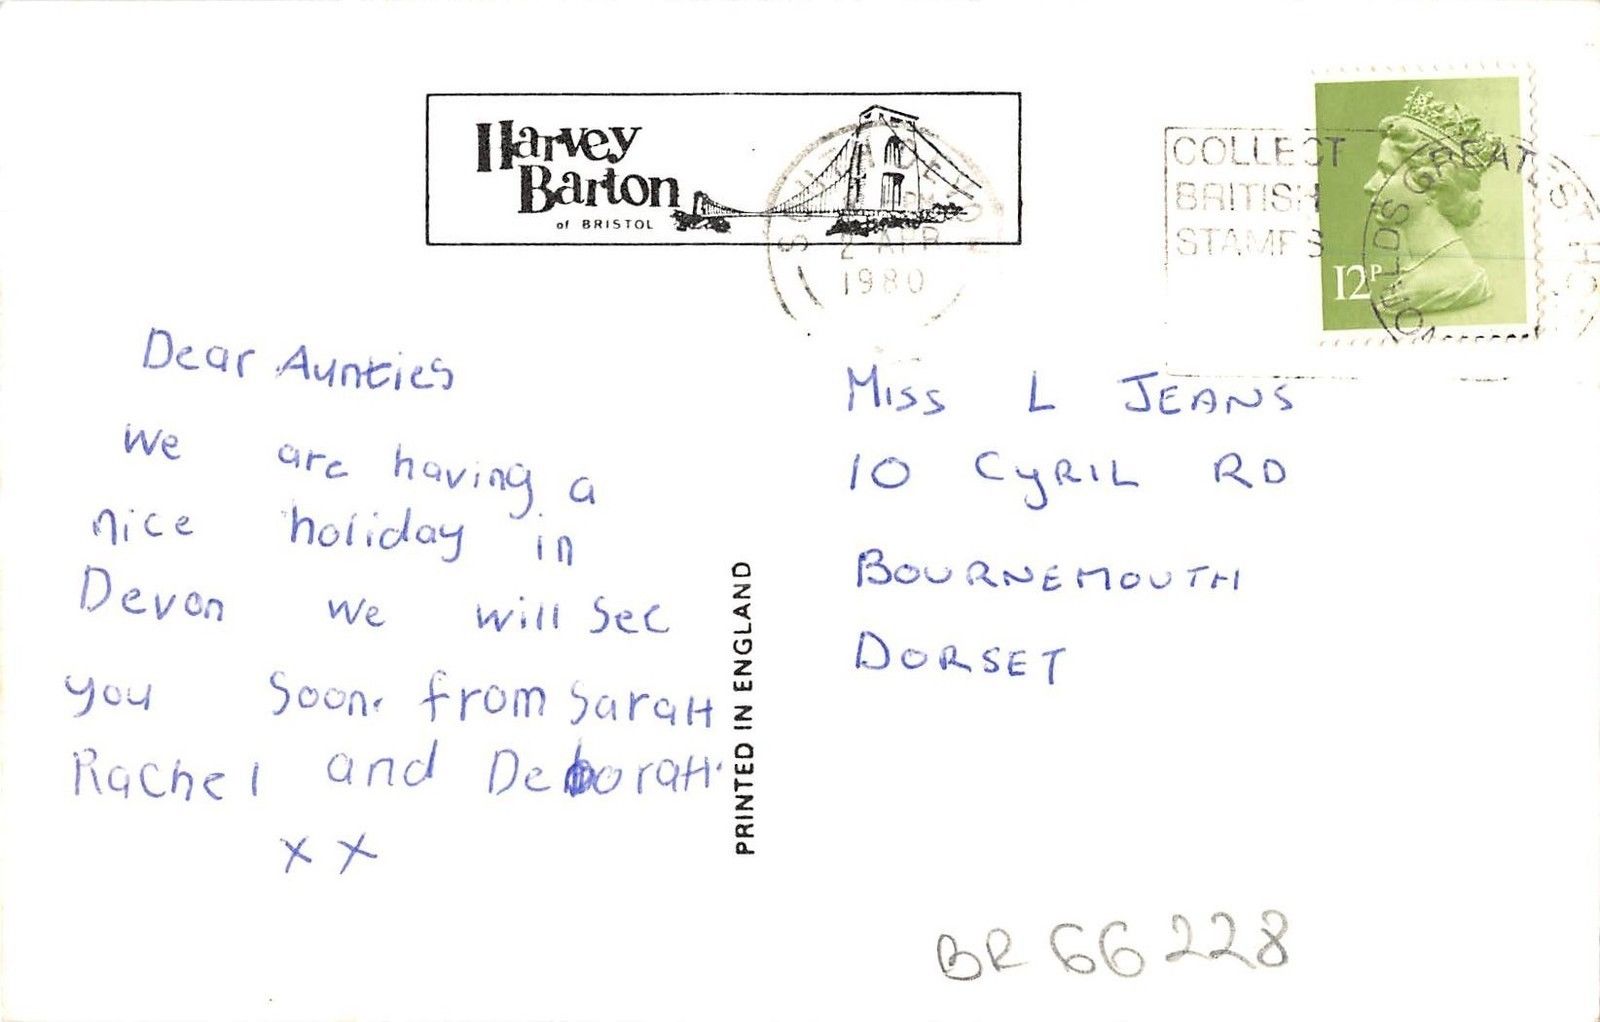 Harvey
Barton
of BRISTOL
SOUTH DEVON
2 APR
1980
COLLECT
BRITISH
STAMPS
WORLDS GREATEST H
12P
Dear Aunties
we are having a
nice holiday in
Devon we will see
you soon. from SaraH
Rachel and DeboraH.
x x
PRINTED IN ENGLAND
MISS L JEANS
10 CYRIL RD
BOURNEMOUTH
DORSET
BR 66228